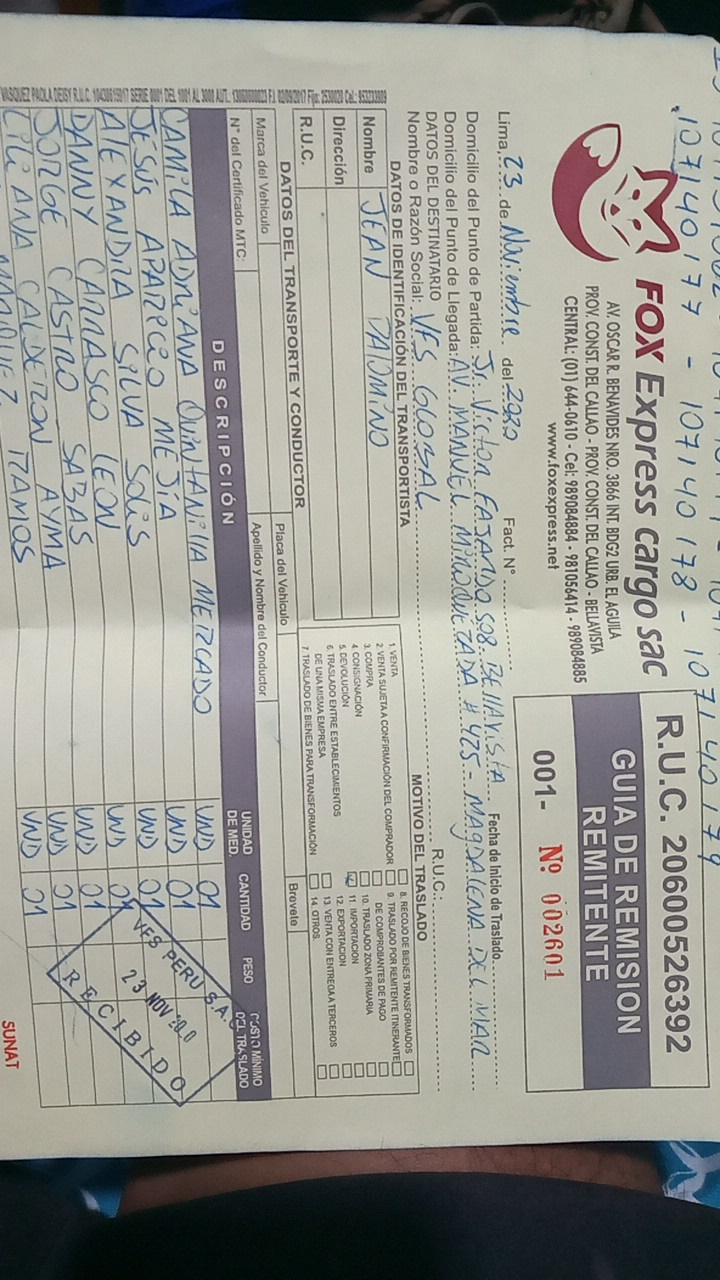 107140177 - 107140178 - 107140179
FOX Express cargo sac
AV. OSCAR R. BENAVIDES NRO. 3866 INT. BDG2 URB. EL AGUILA
PROV. CONST. DEL CALLAO - PROV. CONST. DEL CALLAO - BELLAVISTA
CENTRAL: (01) 644-0610 - Cel: 989084884 - 981056414 - 989084885
www.foxexpress.net
R.U.C. 20600526392
GUIA DE REMISION
REMITENTE
001- Nº 002601
Lima, 23 de Noviembre del 2020 Fact. N° Fecha de Inicio de Traslado
Domicilio del Punto de Partida: Jr. Victor FAJARDO 598. BELLAVISTA
Domicilio del Punto de Llegada: AV. MANUEL MIROQUEZADA # 425 - MAGDALENA DEL MAR
DATOS DEL DESTINATARIO
Nombre o Razón Social: VFS GLOBAL R.U.C.:
DATOS DE IDENTIFICACIÓN DEL TRANSPORTISTA
Nombre JEAN PALOMINO
Dirección
R.U.C.
MOTIVO DEL TRASLADO
1. VENTA
2. VENTA SUJETA A CONFIRMACIÓN DEL COMPRADOR
3. COMPRA
4. CONSIGNACIÓN
5. DEVOLUCIÓN
6. TRASLADO ENTRE ESTABLECIMIENTOS
DE UNA MISMA EMPRESA
7. TRASLADO DE BIENES PARA TRANSFORMACIÓN
8. RECOJO DE BIENES TRANSFORMADOS
9. TRASLADO POR REMITENTE ITINERANTE
DE COMPROBANTES DE PAGO
10. TRASLADO ZONA PRIMARIA
11. IMPORTACION
12. EXPORTACION
13. VENTA CON ENTREGA A TERCEROS
14. OTROS
DATOS DEL TRANSPORTE Y CONDUCTOR
Marca del Vehiculo Placa del Vehiculo Brevete
N° del Certificado MTC: Apellido y Nombre del Conductor
DESCRIPCIÓN UNIDAD DE MED. CANTIDAD PESO COSTO MÍNIMO DEL TRASLADO
CAMILA ADRIANA QUINTANILLA MERCADO UND 01
JESÚS APARECIO MEJÍA UND 01
ALEXANDRA SILVA SOLIS UND 01
DANNY CARRASCO LEON UND 01
JORGE CASTRO SABAS UND 01
CALDERON AYMA UND 01
RAMOS UND 01
VFS PERU S.A.
23 NOV
RECIBIDO
SUNAT
VASQUEZ PAOLA DEISY R.U.C. 10430815017 SERIE 0001 DEL 1001 AL 3000 AUT. 13060600023 F.I. 02/09/2017 Fijo: 2530020 Cel.: 953233909